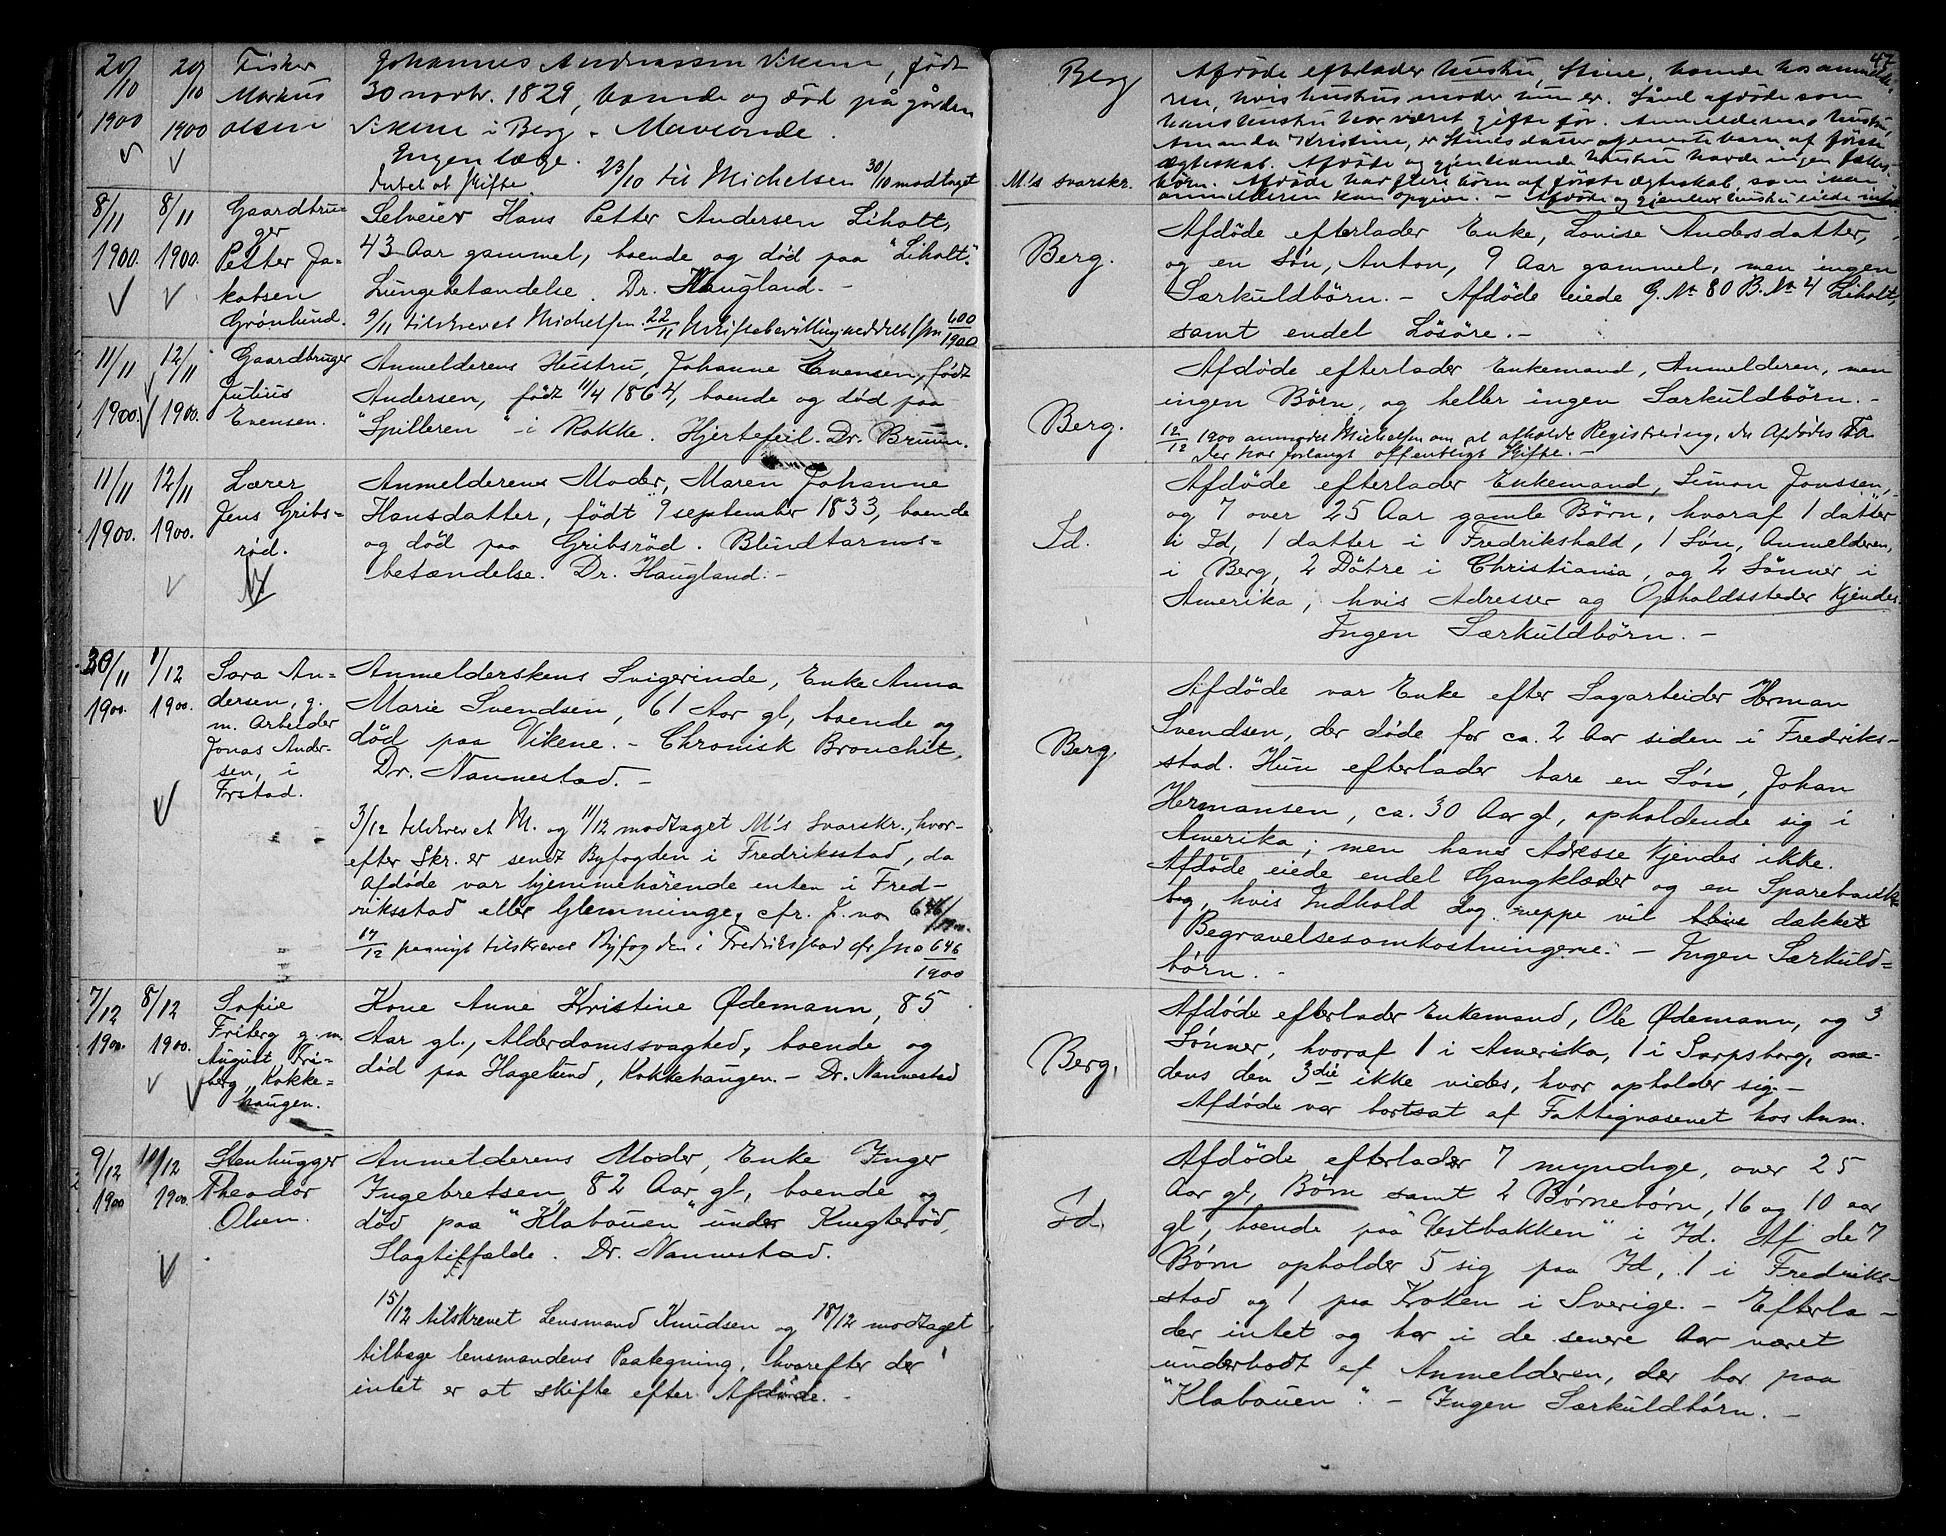 20/10 1900
20/10 1900
Fisker
Markus
Olsen
Johannes Andreassen Vikene, født
30 novbr. 1829, boende og død på gården
Vikene i Berg. Mavesonde.
Ingen læge.
Intet at skifte. 23/10 til Michelsen 30/10 modtaget
Berg
M's svarskr.
47
Afdøde efterlader hustru, Stine, boende hos anmelde-
ren, hvis hustrus moder hun er. Såvel afdøde som
hans hustru har været gifte før. Anmelderens hustru,
Amanda Kristine, er Stines datter af første
ægteskab. Afdøde og gjenlevende hustru havde ingen fælles-
børn. Afdøde har flere børn af første ægteskab, som
anmelderen kan opgive. – Afdøde og gjenlev. hustru eiede intet.
8/11 1900.
8/11 1900.
Gaardbru-
ger
Petter Ja-
kobsen
Grønlund.
Selveier Hans Petter Andersen Liholt,
43 Aar gammel, boende og død paa "Liholt".
Lungebetændelse. Dr. Haugland. –
9/11 tilskrevet Michelsen. 22/11 Uskiftebevilling meddelt J.No 600/1900
Berg.
Afdøde efterlader Enke, Lovise Andersdatter,
og en Søn, Anton, 9 Aar gammel, men ingen
Særkuldbørn. – Afdøde eiede G.No 80 B.No 4 Liholt,
samt endel Løsøre. –
11/11 1900.
12/11 1900.
Gaardbruger
Julius
Evensen.
Anmelderens Hustru, Johanne Evensen, født
Andersen, født 11/4 1864, boende og død paa
"Spilleren" i Rokke. Hjertefeil. Dr. Bruun.
Berg.
Afdøde efterlader Enkemand, Anmelderen, men
ingen Børn, og heller ingen Særkuldbørn. –
12/12 1900 anmodet Michelsen om at afholde Registrering, da Afdødes Fa-
der har forlangt offentligt Skifte. –
11/11 1900.
12/11 1900.
Lærer
Jens Gribs-
rød.
Anmelderens Moder, Maren Johanne
Hansdatter, født 9 september 1833, boende
og død paa Gribsrød. Blindtarms-
betændelse. Dr. Haugland. –
Id.
Afdøde efterlader Enkemand, Simon Jonssen,
og 7 over 25 Aar gamle Børn, hvoraf 1 datter
i Id, 1 datter i Fredrikshald, 1 Søn, Anmelderen,
i Berg, 2 Døtre i Christiania, og 2 Sønner i
Amerika, hvis Adresser og Opholdssteder kjendes.
Ingen Særkuldbørn. –
30/11 1900.
1/12 1900.
Sara An-
dersen, g.
m. Arbeider
Jonas Ander-
sen, i
Frstad.
Anmelderskens Svigerinde, Enke Anna
Marie Svendsen, 61 Aar gl, boende og
død paa Vikene. – Chronisk Bronchit,
Dr. Nannestad. –
3/12 tilskrevet M. og 11/12 modtaget M's Svarskr., hvor-
efter Skr. er sendt Byfogden i Fredriksstad, da
Afdøde var hjemmehørende enten i Fred-
riksstad eller Glemminge, cfr. J. no 646/1900.
17/12 paanyt tilskrevet Byfogden i Fredriksstad cfr Jno 646/1900
Berg.
Afdøde var Enke efter Sagarbeider Herman
Svendsen, der døde for ca. 2 Aar siden i Fredriks-
stad. Hun efterlader bare en Søn, Johan
Hermansen, ca. 30 Aar gl, opholdende sig i
Amerika; men hans Adresse kjendes ikke.
Afdøde eiede endel Gangklæder og en Sparebank-
bog, hvis Indhold dog neppe vil blive dækket
Begravelsesomkostningerne. – Ingen Særkuld-
børn. –
7/12 1900.
8/12 1900.
Sofie
Friberg g. m.
August Fri-
berg, Rokke-
haugen.
Kone Anne Kristine Ødemann, 85
Aar gl., Alderdomssvaghed, boende og
død paa Hagelund, Rokkehaugen. – Dr. Nannestad
Berg.
Afdøde efterlader Enkemand, Ole Ødemann, og 3
Sønner, hvoraf 1 i Amerika, 1 i Sarpsborg, me-
dens den 3die ikke vides, hvor opholder sig. –
Afdøde var bortsat af Fattigvæsenet hos Anm.
9/12 1900
10/12 1900.
Stenhugger
Theodor
Olsen.
Anmelderens Moder, Enke Inger
Ingebretsen, 82 Aar gl, boende og
død paa "Klabouen" under Knegterød,
Slagtilfælde. Dr. Nannestad.
15/12 tilskrevet Lensmand Knudsen og 18/12 modtaget
tilbage lensmandens Paategning, hvorefter der
intet er at skifte efter Afdøde. –
Id.
Afdøde efterlader 7 myndige, over 25
Aar gl, Børn samt 2 Børnebørn, 16 og 10 aar
gl, boende paa "Vestbakken" i Id. Af de 7
Børn opholder 5 sig paa Id, 1 i Fredriks-
stad og 1 paa Kroken i Sverige. – Efterla-
der intet og har i de senere Aar været
underhodt af Anmelderen, der bor paa
"Klabouen". – Ingen Særkuldbørn. –